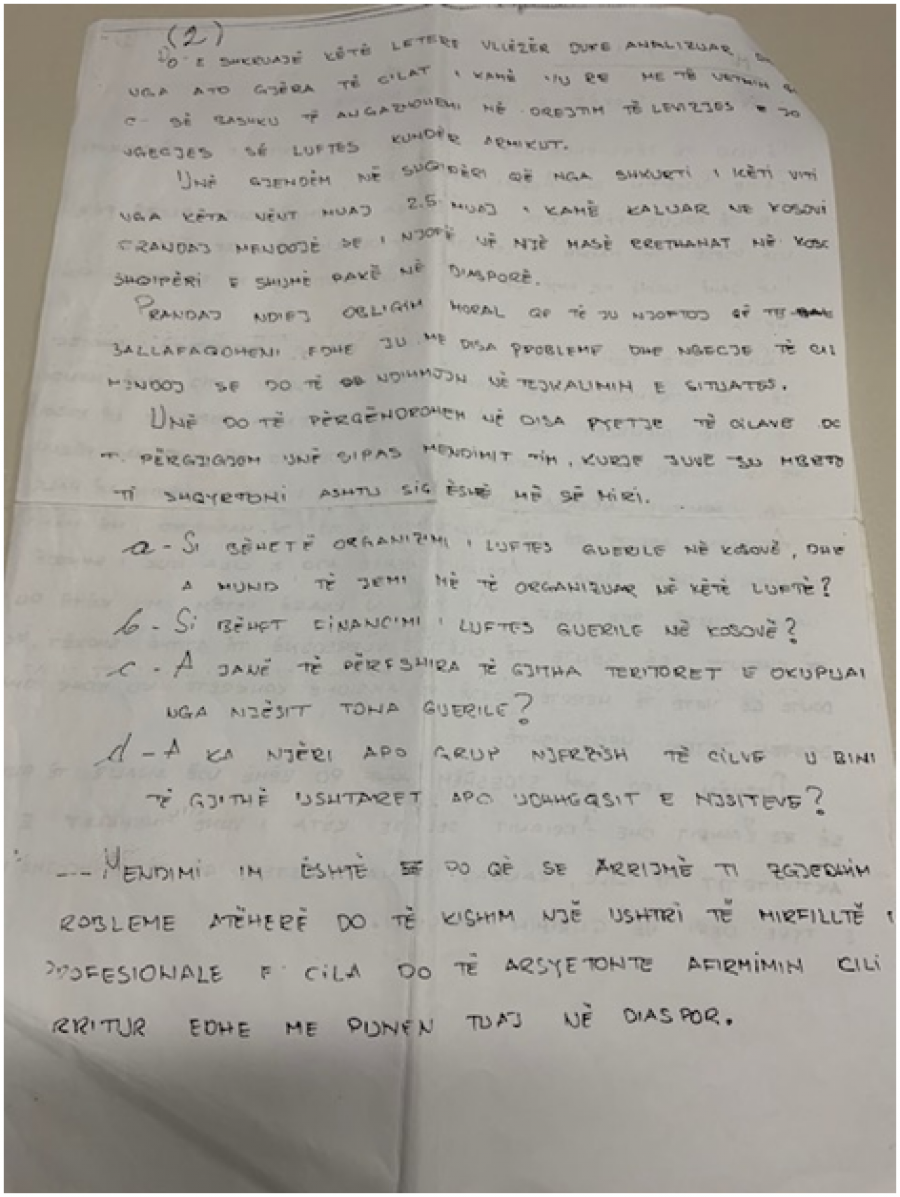 (2)
PO E SHKRUAJË KËTË LETERË VLLEZËR DUKE ANALIZUAR
NGA ATO GJËRA TË CILAT I KAMË VU RE ME TË VETMIN
SË BASHKU TË ANGAZHOHEMI NË DREJTIM TË LEVIZJES
NGECJES SË LUFTES KUNDËR ARMIKUT.
UNË GJENDËM NË SHQIPËRI QË NGA SHKURTI I KËTI VITI
NGA KËTA NËNT MUAJ 2.5 MUAJ I KAMË KALUAR NË KOSOVË
PRANDAJ MENDOJË SE I NJOFË NË NJË MASË RRETHANAT NË KOSO
SHQIPËRI E SHUMË PAKË NË DIASPORË.
PRANDAJ NDIEJ OBLIGIM MORAL QË TË JU NJOFTOJ QË TË
BALLAFAQOHENI EDHE JU ME DISA PROBLEME DHE NGECJE TË CIL
MENDOJ SE DO TË NDIHMOJN NË TEJKALIMIN E SITUATES.
UNË DO TË PËRQËNDROHEM NË DISA PYETJE TË CILAVE DO
T. PËRGJIGJOM UNË SIPAS MENDIMIT TIM, KURJE JUVE JU MBETË
TI SHQYRTONI ASHTU SIÇ ËSHË MË SË MIRI.
a - SI BËHETË ORGANIZIMI I LUFTES GUERILE NË KOSOVË, DHE
A MUND TË JEMI MË TË ORGANIZUAR NË KËTË LUFTË?
b - SI BËHET FINANCIMI I LUFTES GUERILE NË KOSOVË?
c - A JANË TË PËRFSHIRA TË GJITHA TERITORET E OKUPUAI
NGA NJËSIT TONA GUERILE?
d - A KA NJËRI APO GRUP NJERZISH TË CILVE U BINI
TË GJITHË USHTARET APO UDHHEQSIT E NJSITEVE?
--- MENDIMI IM ËSHTË SE PO QË SE ARRIJMË TI ZGJEDHIM
ROBLEME ATËHERË DO TË KISHIM NJË USHTRI TË MIRFILLTË
PROFESIONALE E CILA DO TË ARSYETONTE AFIRMIMIN CILI
RRITUR EDHE ME PUNEN TUAJ NË DIASPOR.